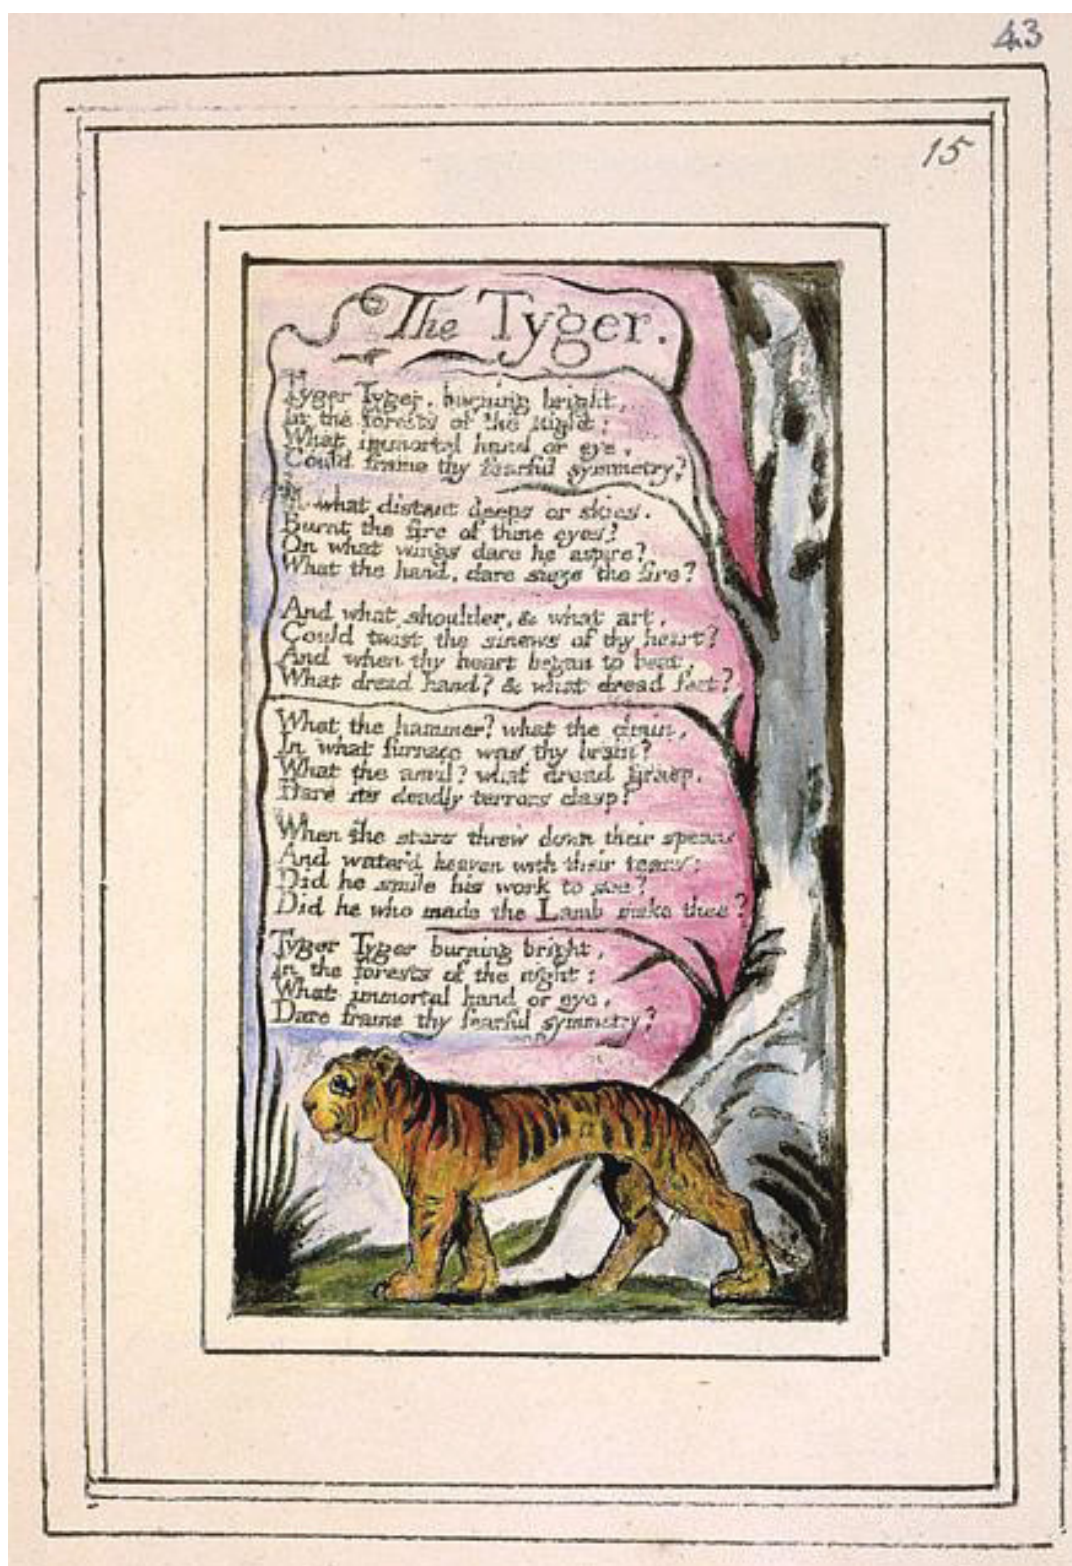 43
15
The Tyger.
Tyger Tyger, burning bright,
In the forests of the night;
What immortal hand or eye,
Could frame thy fearful symmetry?
In what distant deeps or skies.
Burnt the fire of thine eyes?
On what wings dare he aspire?
What the hand, dare sieze the fire?
And what shoulder, & what art,
Could twist the sinews of thy heart?
And when thy heart began to beat,
What dread hand? & what dread feet?
What the hammer? what the chain,
In what furnace was thy brain?
What the anvil? what dread grasp,
Dare its deadly terrors clasp?
When the stars threw down their spears
And water'd heaven with their tears:
Did he smile his work to see?
Did he who made the Lamb make thee?
Tyger Tyger burning bright,
In the forests of the night:
What immortal hand or eye,
Dare frame thy fearful symmetry?